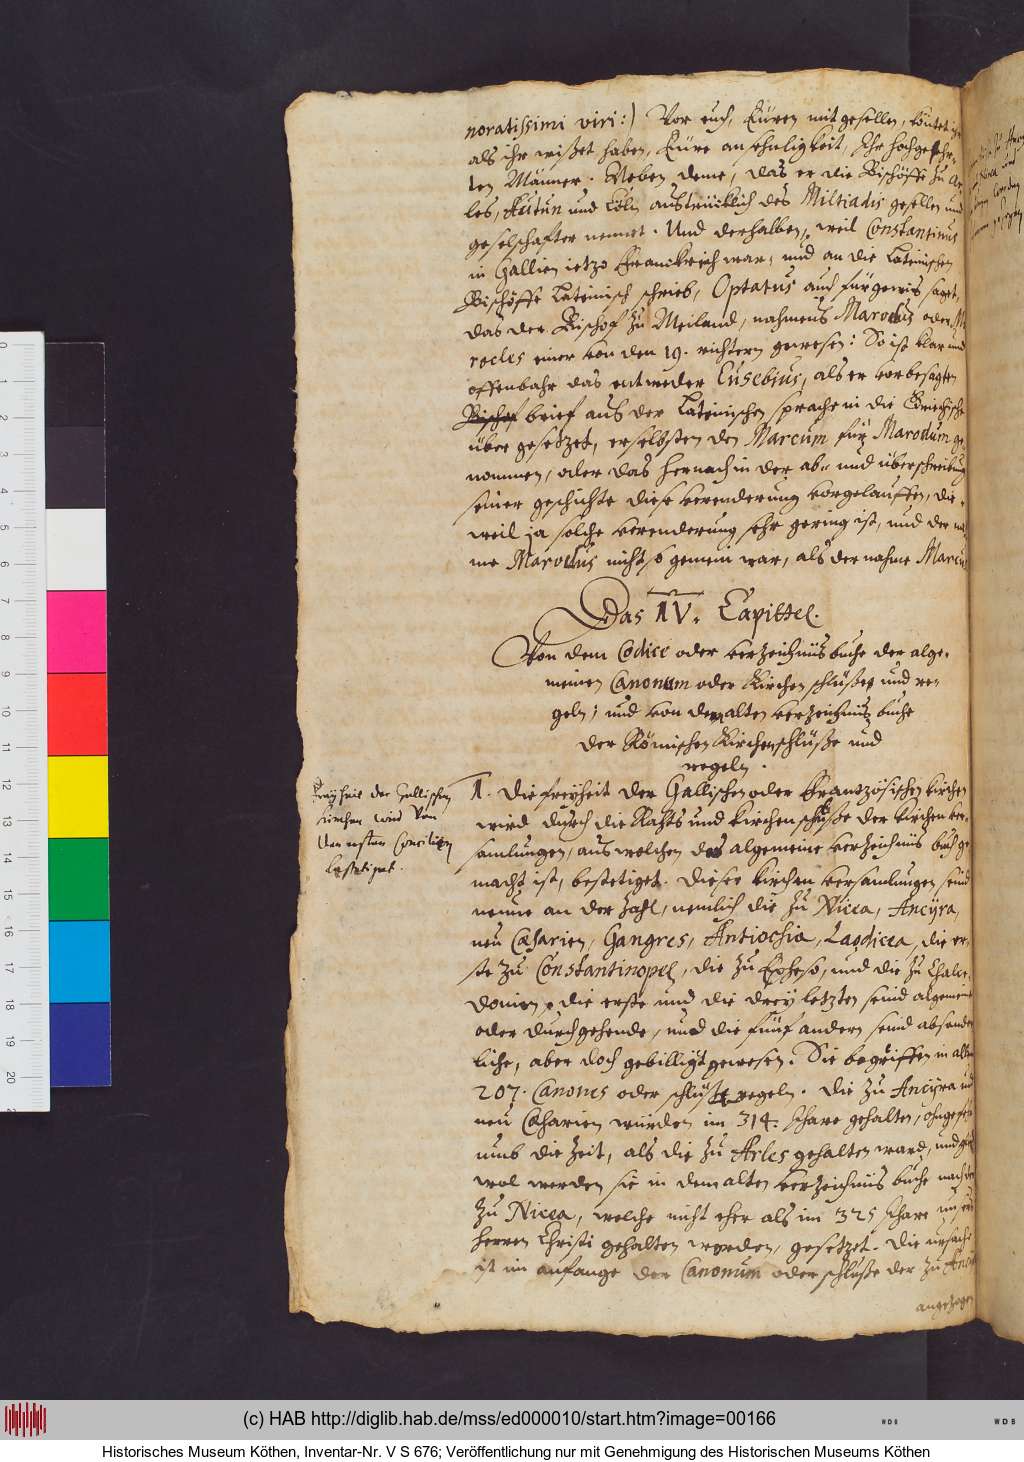 noratissimi viri:) Vor euch, Euren mitgesellen, könnet ihr
als ihr wißet haben, Eure ansehnligkeit, Ihr hochgeehr-
ten Männer. Neben deme, das er die Bischöffe zu Ar
les, Autun und Cöln austrücklich des Miltiadis gesellen und
geselschafter nennet. Und derhalben, weil Constantinus
in Gallien ietzo Franckreich war, und an die Lateinischen
Bischöffe Lateinisch schrieb, Optatus auch für gewis saget,
das der Bischof zu Meiland, nahmens Maroclus oder Me
rocles einer von den 19. richtern gewesen: So ist klar und
offenbahr das entweder Eusebius, als er vorbesagten
Bischof brief aus der Lateinischen sprache in die Griechische
über gesetzet, er selbsten den Marcum für Maroclum ge
nommen, oder das hernach in der ab- und überschreibung
seiner geschichte diese verenderung vorgelauffen, die-
weil ja solche verenderung sehr gering ist, und der nah
me Maroclus nicht so gemein war, als der nahme Marcus
Das IV. Capittel.
Von dem Codice oder verzeichnüs buche der alge-
meinen Canonum oder Kirchen schlüße und re-
geln; und von dem alten verzeichnüs buche
der Römischen Kirchenschlüße und
regeln.
Freyheit der Gallischen
Kirchen wird von
den ersten Concilien
bestetiget.
1. Die freyheit der Gallischen oder Frantzösischen kirchen
wird durch die Rahts und kirchen schlüße der kirchen ver
samlungen, aus welchen das algemeine verzeichnüs buch ge
macht ist, bestetiget. Dieser kirchen versamlungen seind
neune an der zahl, nemlich die zu Nicea, Ancyra,
neu Cæsarien, Gangres, Antiochia, Laodicea, die er-
ste zu Constantinopel, die zu Epheso, und die zu Chalce-
donien, die erste und die drey letzten seind algemeine
oder durchgehende, und die fünf andern seind absonder
liche, aber doch gebilligt gewesen. Sie begriffen in allem
207. Canones oder schlüße regeln. Die zu Ancyra und
neu Cæsarien wurden im 314. Jhare gehalten, ohngefehr
umb die Zeit, als die zu Arles gehalten ward, und gleich
wol werden sie in dem alten verzeichnüs buche nach der
zu Nicea, welche nicht eher als im 325 Jhare unsers
herren Christi gehalten worden, gesetzet. Die ursache
ist im anfange der Canonum oder schlüße der zu Ancyra
angezogen
(c) HAB http://diglib.hab.de/mss/ed000010/start.htm?image=00166
WDB
WDB
Historisches Museum Köthen, Inventar-Nr. V S 676; Veröffentlichung nur mit Genehmigung des Historischen Museums Köthen